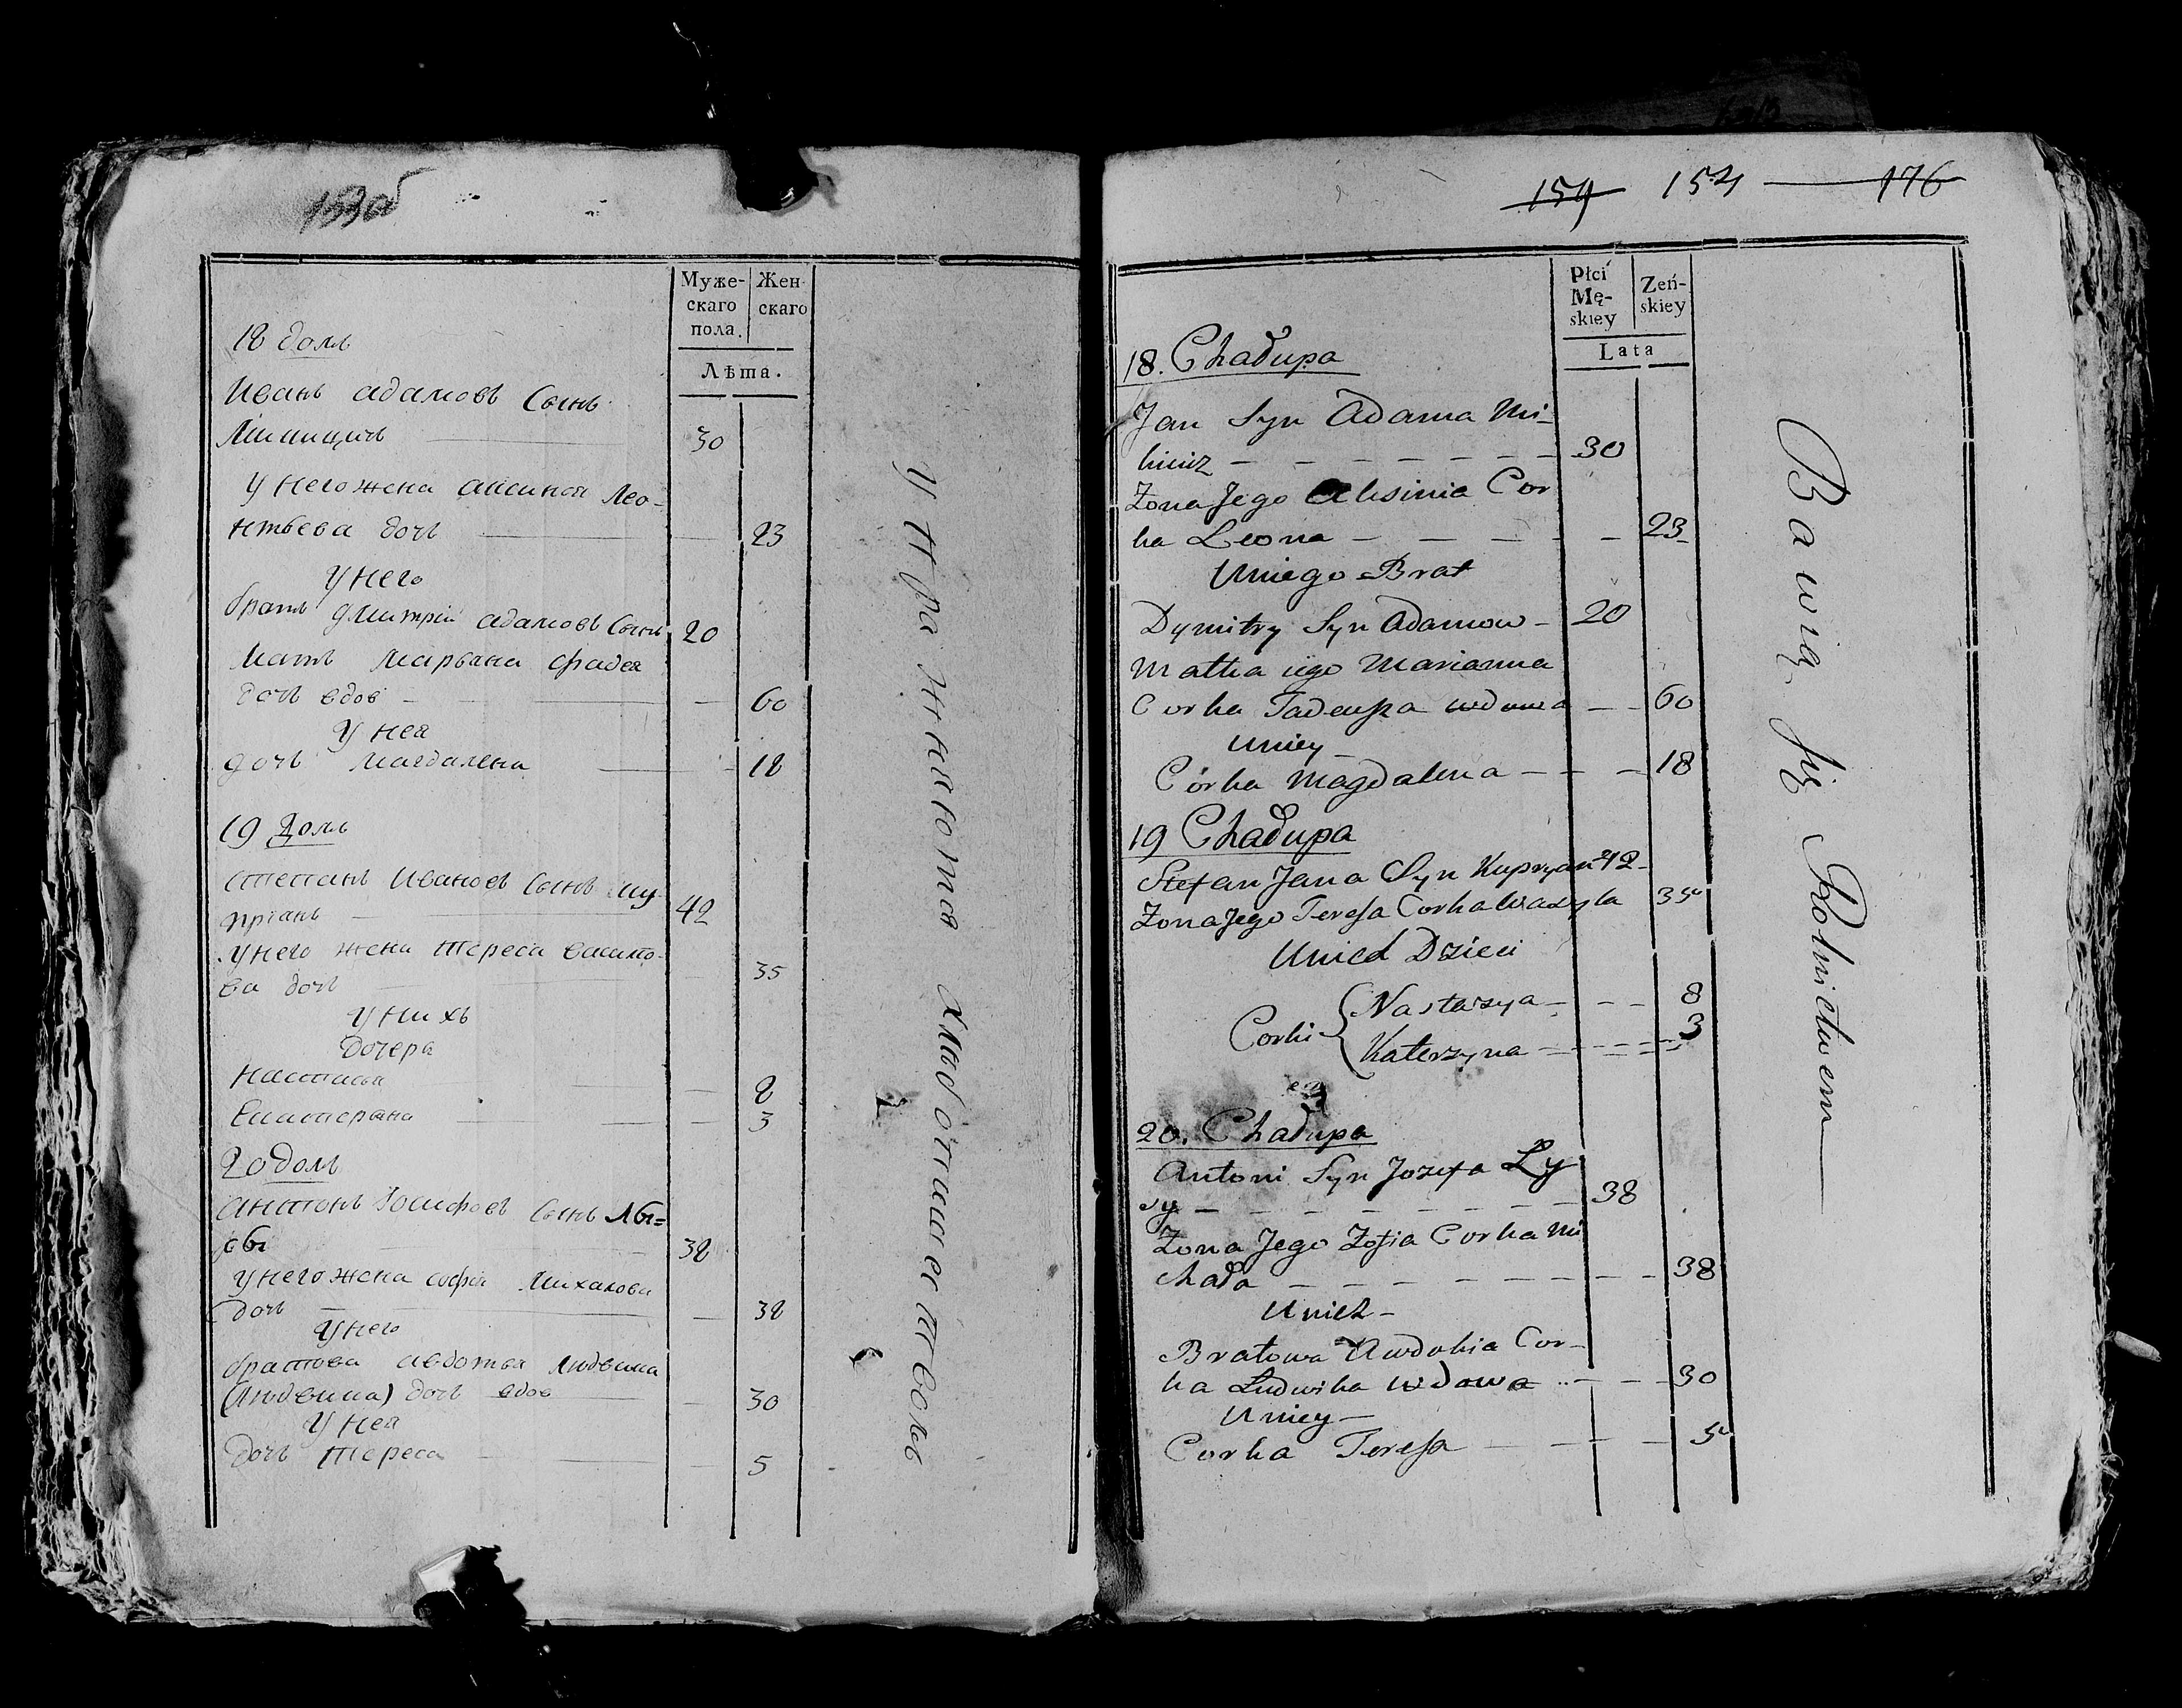 153об
Муже-
скаго
пола.
Жен-
скаго
Лѣта.
18 домъ
Иванъ адамовъ Сынъ
Милицичъ 30
У него жена аксинья Лео-
нтьева дочь 23
У него
братъ дмитрій адамовъ Сынъ 20
Мать Марьана фадея
дочь вдов 60
У нея
дочь Магдалена 18
19 Домъ
степанъ Ивановъ Сынъ ку
пріанъ 42
У него жена тереса васило-
ва дочь 35
У нихъ
дочера
настасья 8
Екатерына 3
20 домъ
антонъ Іосифовъ Сынъ Лы=
сы 38
У него жена софія Михалова
дочь 38
У него
братова авдотья людвика
(людвика) дочь вдов 30
У нея
дочь тереса 5
Упражняются хлебопашеством
159 154 176
Płci
Mę-
skiey
Zeń-
skiey
Lata
18. Chałupa
Jan Syn Adama Mi-
licicz 30
Zona Jego Aksinia Cor
ka Leona 23
Uniego Brat
Dymitry Syn Adamow 20
Matka iego Marianna
Corka Tadeusza wdowa 60
Uniey
Córka Magdalena 18
19 Chałupa
Stefan Jana Syn Kupryan 42
Zona Jego Teresa Corka Wasyla 35
Unich Dzieci
Corki { Nastazya 8
Katerzyna 3
20. Chałupa
Antoni Syn Jozefa Ły
sy 38
Zona Jego Zofia Corka Mi
chała 38
Unich
Bratowa Awdokia Cor-
ka Ludwika wdowa 30
Uniey
Corka Teresa 5
Bawią się Rolnictwem